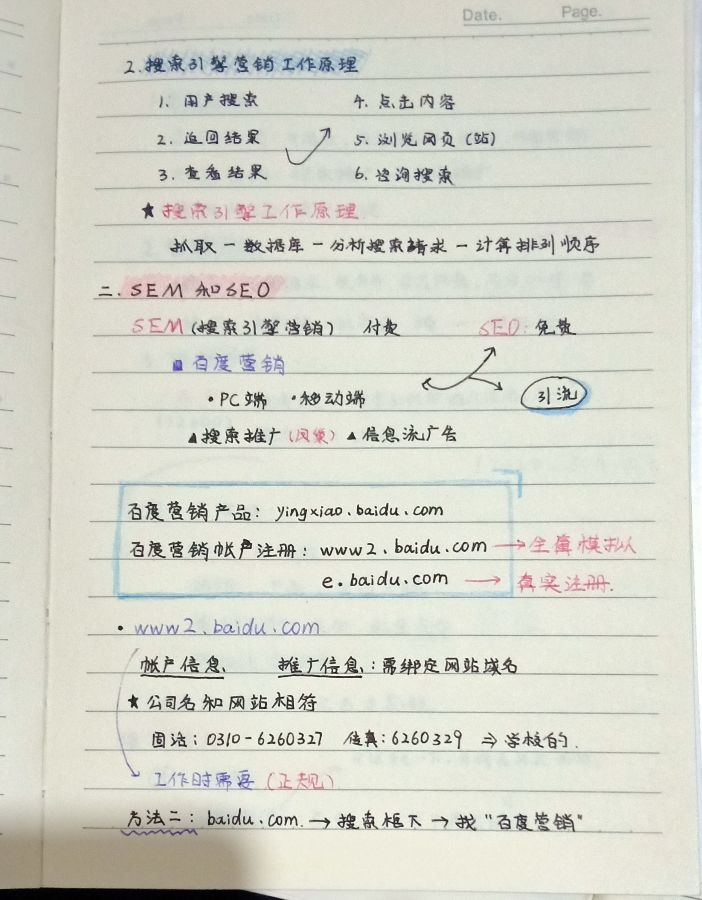 Date. Page.
2.搜索引擎营销工作原理
1. 用户搜索 4. 点击内容
2. 返回结果 5. 浏览网页(站)
3. 查看结果 6. 咨询搜索
★搜索引擎工作原理
抓取-数据库-分析搜索请求-计算排列顺序
二.SEM和SEO
SEM(搜索引擎营销) 付费 SEO:免费
■百度营销
·PC端 ·移动端 引流
▲搜索推广(凤巢)▲信息流广告
百度营销产品:yingxiao.baidu.com
百度营销帐户注册:www2.baidu.com→全真模拟
e.baidu.com→真实注册.
·www2.baidu.com
帐户信息、 推广信息:需绑定网站域名
★公司名和网站相符
固话:0310-6260327 传真:6260329 ⇒学校的.
工作时需要(正规)
方法二:baidu.com.→搜索框下→找"百度营销"